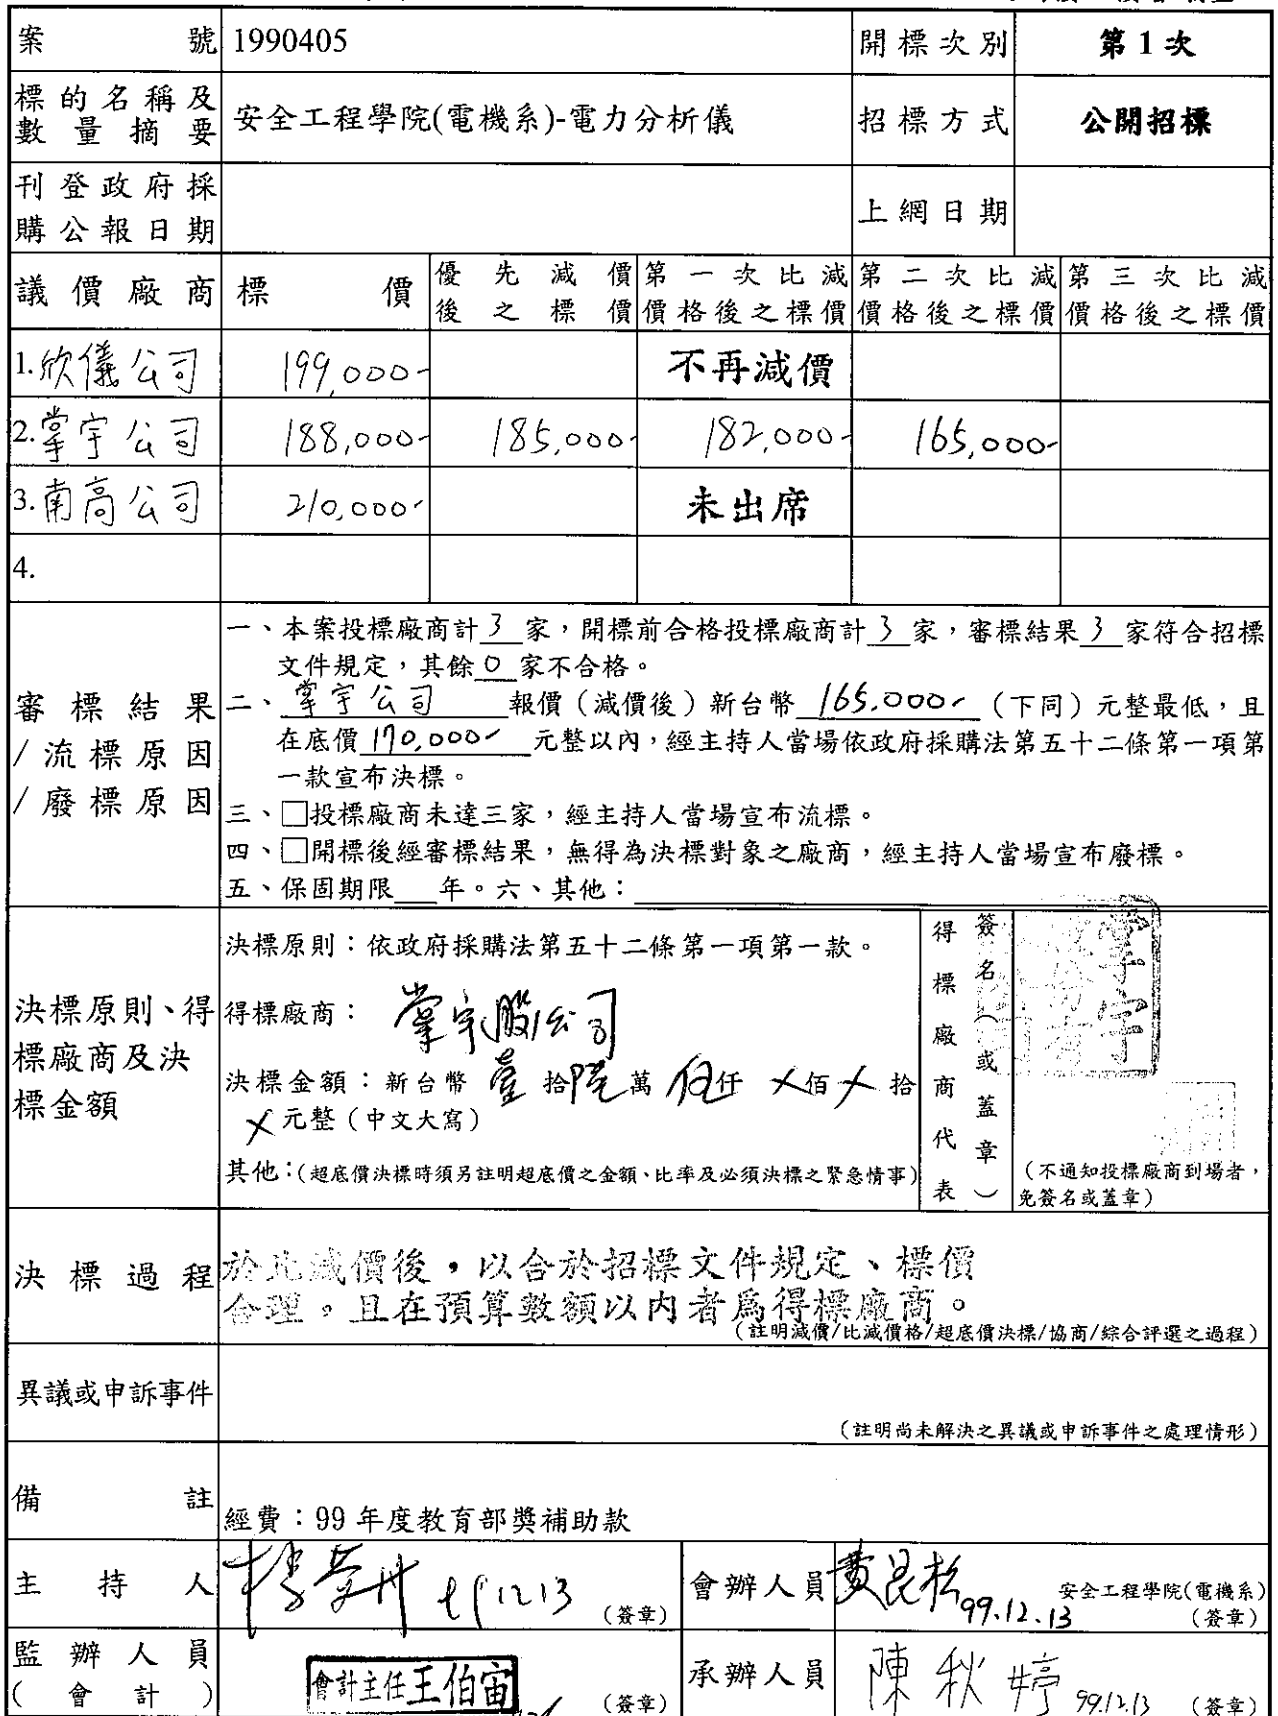 案號 1990405 開標次別 第1次
標的名稱及數量摘要 安全工程學院(電機系)-電力分析儀 招標方式 公開招標
刊登政府採購公報日期 上網日期
議價廠商 標價 優先減價後之標價 第一次比減價格後之標價 第二次比減價格後之標價 第三次比減價格後之標價
1.欣儀公司 199,000- 不再減價
2.掌宇公司 188,000- 185,000- 182,000- 165,000-
3.南高公司 210,000- 未出席
4.
審標結果/流標原因/廢標原因
一、本案投標廠商計3家，開標前合格投標廠商計3家，審標結果3家符合招標
文件規定，其餘0家不合格。
二、掌宇公司 報價（減價後）新台幣 165,000-（下同）元整最低，且
在底價 170,000- 元整以內，經主持人當場依政府採購法第五十二條第一項第
一款宣布決標。
三、□投標廠商未達三家，經主持人當場宣布流標。
四、□開標後經審標結果，無得為決標對象之廠商，經主持人當場宣布廢標。
五、保固期限___年。六、其他：
決標原則、得標廠商及決標金額
決標原則：依政府採購法第五十二條第一項第一款。
得標廠商：掌宇股公司
決標金額：新台幣 壹 拾陸萬 伍仟 ㄨ佰ㄨ拾
ㄨ元整（中文大寫）
其他：(超底價決標時須另註明超底價之金額、比率及必須決標之緊急情事)
得標廠商代表 簽名（或蓋章）
掌宇
（不通知投標廠商到場者，
免簽名或蓋章）
決標過程 於比減價後，以合於招標文件規定、標價
合理。且在預算數額以內者為得標廠商。
（註明減價/比減價格/超底價決標/協商/綜合評選之過程）
異議或申訴事件
（註明尚未解決之異議或申訴事件之處理情形）
備註 經費：99年度教育部獎補助款
主持人 12.13 （簽章） 會辦人員 99.12.13 安全工程學院(電機系)
（簽章）
監辦人員（會計） 會計主任王伯宙 （簽章） 承辦人員 陳秋婷 99.12.13 （簽章）